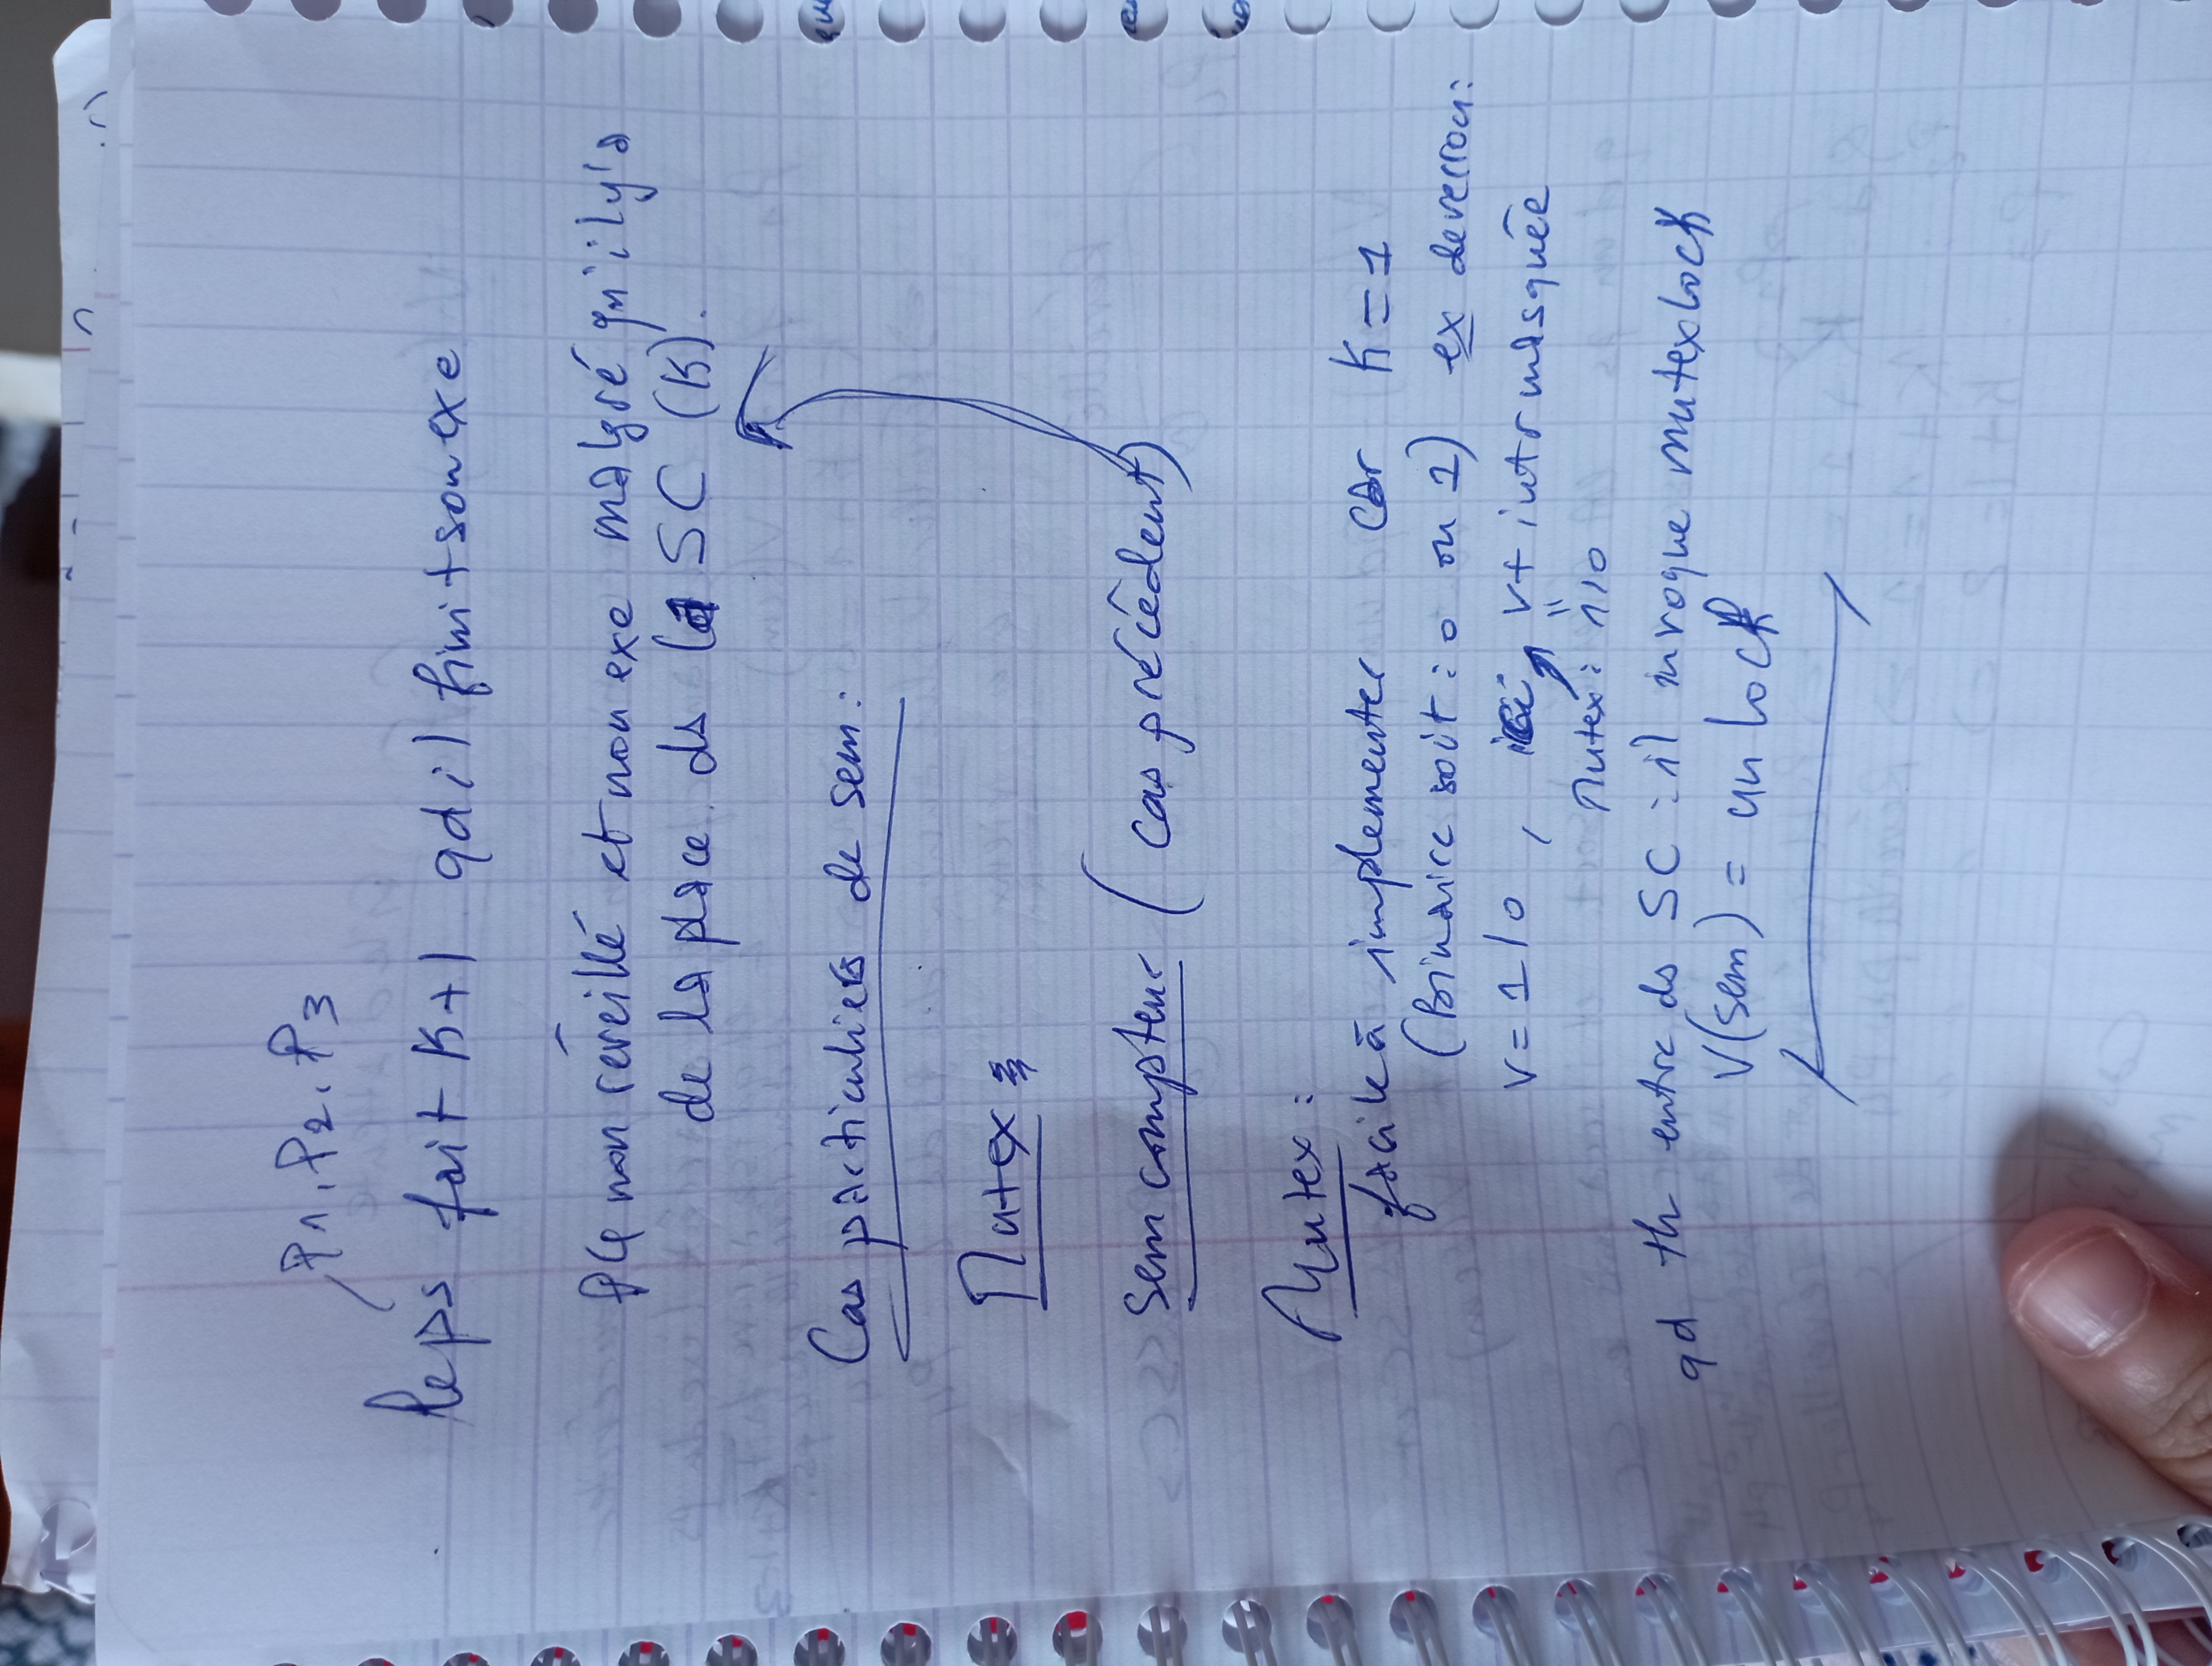 P1, P2, P3
le ps fait K+1 qd il finit son exe
P4 non réveillé et non exe malgré qu'il y'a
de la place ds la SC (K).
Cas particuliers de sem:
Mutex
sem compteur (cas précédent)
Mutex:
facile à implementer car K=1
(Binaire soit : 0 ou 1) ex de verrou:
v = 1/0 , ici v + intr masquée
Mutex: 1/0
qd th entre ds SC : il invoque mutex lock
V(sem) = unlock